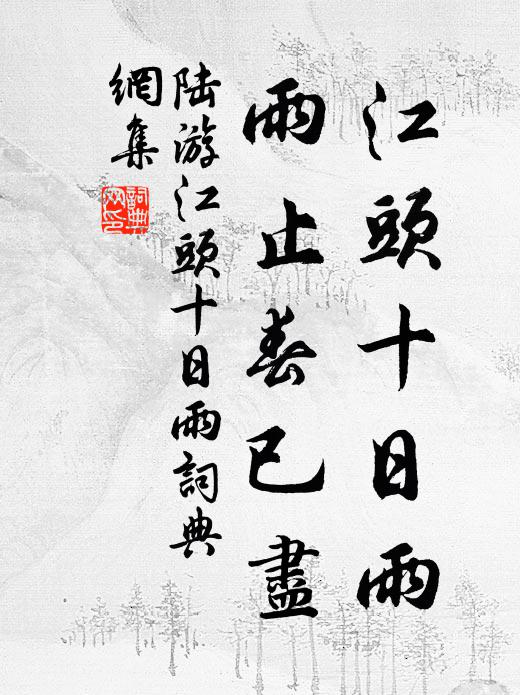 江頭十日雨
雨止春已盡
陸游江頭十日雨詞典
網集
詞典網印